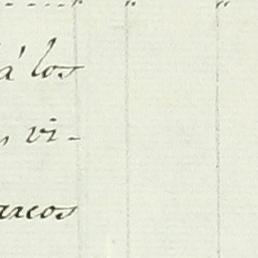 á los
vi-
arcos